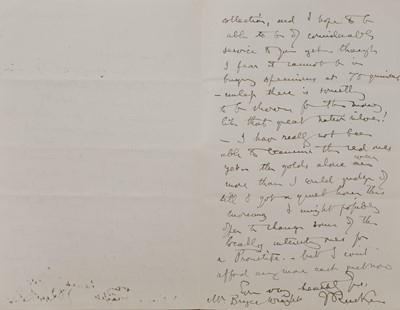 collection, and I hope to be
able to be of considerable
service to you yet — though
I fear it cannot be in
buying specimens at 70 guineas
— unless there is something
to be shown for the money
like that great native silver!
— I have really not been
able to examine the red ones
yet — the golds alone were
more than I could judge of
till I got a quiet hour this
morning I might possibly
offer to change some of the
locally interesting ones for
a Proustite — but I can't
afford any more cash just now
Ever very heartily yrs,
Mr Bryce Wright J Ruskin